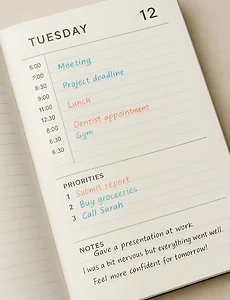 TUESDAY 12
6:00 Meeting
7:00
8:30 Project deadline
9:00
11:00 Lunch
12:30
8:00 Dentist appointment
6:30 Gym
6:30
PRIORITIES
1 Submit report
2 Buy groceeries
3 Call Sarah
NOTES
Gave a presentation at work.
I was a bit nervous but everything went well.
Feel more confident for tomorrow!